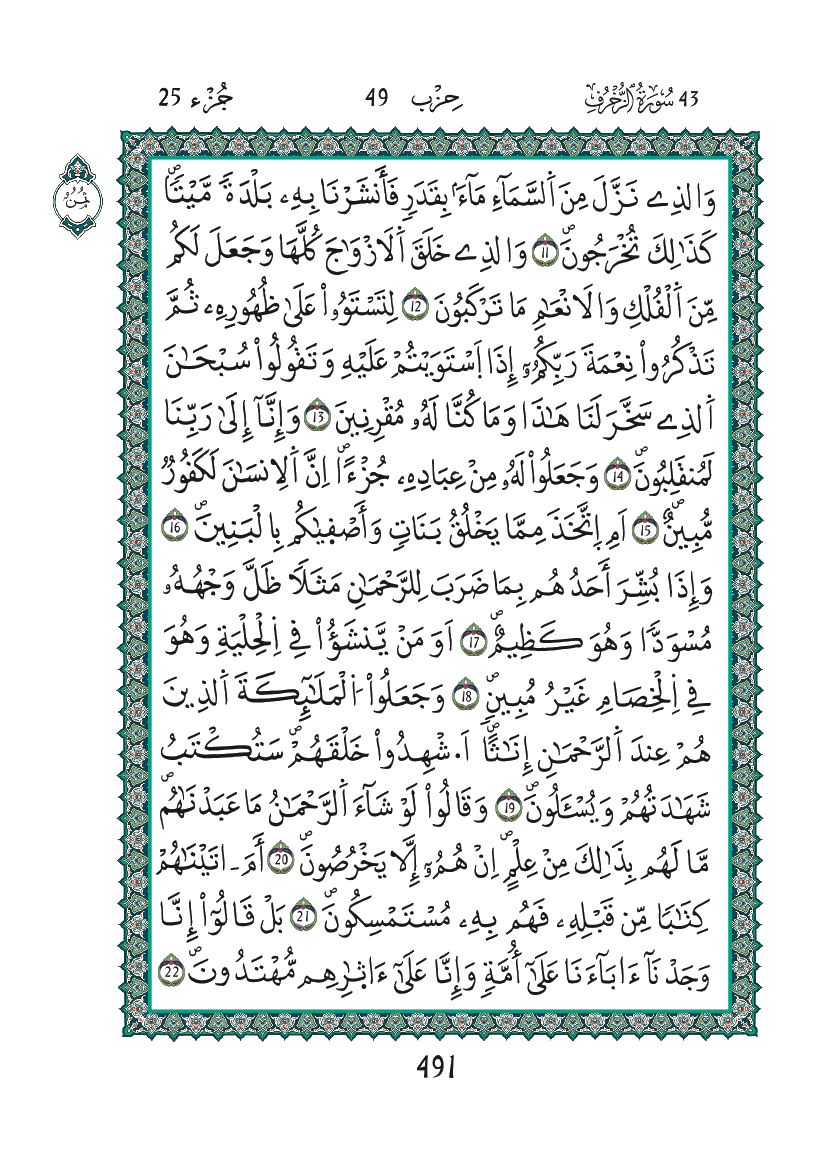 43 سُورَةُ الزُّخْرُفِ حِزْب 49 جُزْء 25
ثُمُن
وَالذِے نَزَّلَ مِنَ اَ۬لسَّمَآءِ مَآءَۢ بِقَدَرٖ فَأَنشَرْنَا بِهِۦ بَلْدَةٗ مَّيْتاٗۖ
كَذَٰلِكَ تُخْرَجُونَۖ 11 وَالذِے خَلَقَ اَ۬لَازْوَٰجَ كُلَّهَا وَجَعَلَ لَكُم
مِّنَ اَ۬لْفُلْكِ وَالَانْعَٰمِ مَا تَرْكَبُونَ 12 لِتَسْتَوُۥاْ عَلَىٰ ظُهُورِهِۦ ثُمَّ
تَذْكُرُواْ نِعْمَةَ رَبِّكُمُۥٓ إِذَا اَ۪سْتَوَيْتُمْ عَلَيْهِ وَتَقُولُواْ سُبْحَٰنَ
اَ۬لذِے سَخَّرَ لَنَا هَٰذَا وَمَا كُنَّا لَهُۥ مُقْرِنِينَ 13 وَإِنَّآ إِلَىٰ رَبِّنَا
لَمُنقَلِبُونَۖ 14 وَجَعَلُواْ لَهُۥ مِنْ عِبَادِهِۦ جُزْءاًۖ اِنَّ اَ۬لِانسَٰنَ لَكَفُورٞ
مُّبِينٌۖ 15 اَمِ اِ۪تَّخَذَ مِمَّا يَخْلُقُ بَنَاتٖ وَأَصْفَيٰكُم بِالْبَنِينَۖ 16
وَإِذَا بُشِّرَ أَحَدُهُم بِمَا ضَرَبَ لِلرَّحْمَٰنِ مَثَلاٗ ظَلَّ وَجْهُهُۥ
مُسْوَدّاٗ وَهُوَ كَظِيمٌۖ 17 اَوَ مَنْ يَّنشَؤُاْ فِے اِ۬لْحِلْيَةِ وَهُوَ
فِے اِ۬لْخِصَامِ غَيْرُ مُبِينٖۖ 18 وَجَعَلُواْ اُ۬لْمَلَٰٓئِكَةَ اَ۬لذِينَ
هُمْ عِندَ اَ۬لرَّحْمَٰنِ إِنَٰثاًۖ اَ۟شْهِدُواْ خَلْقَهُمْۖ سَتُكْتَبُ
شَهَٰدَتُهُمْ وَيُسْـَٔلُونَۖ 19 وَقَالُواْ لَوْ شَآءَ اَ۬لرَّحْمَٰنُ مَا عَبَدْنَٰهُمۖ
مَّا لَهُم بِذَٰلِكَ مِنْ عِلْمٍۖ اِنْ هُمُۥٓ إِلَّا يَخْرُصُونَۖ 20 أَمَ ـ اتَيْنَٰهُمْ
كِتَٰباٗ مِّن قَبْلِهِۦ فَهُم بِهِۦ مُسْتَمْسِكُونَۖ 21 بَلْ قَالُوٓاْ إِنَّا
وَجَدْنَآ ءَابَآءَنَا عَلَىٰٓ أُمَّةٖ وَإِنَّا عَلَىٰٓ ءَاثٰ۪رِهِم مُّهْتَدُونَۖ 22
491